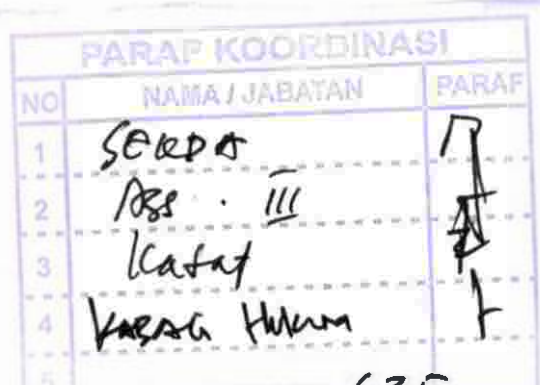 PARAF KOORDINASI
NO NAMA / JABATAN PARAF
1 SEKDA
2 Ass. III
3 Kasat
4 KABAG Hukum
5